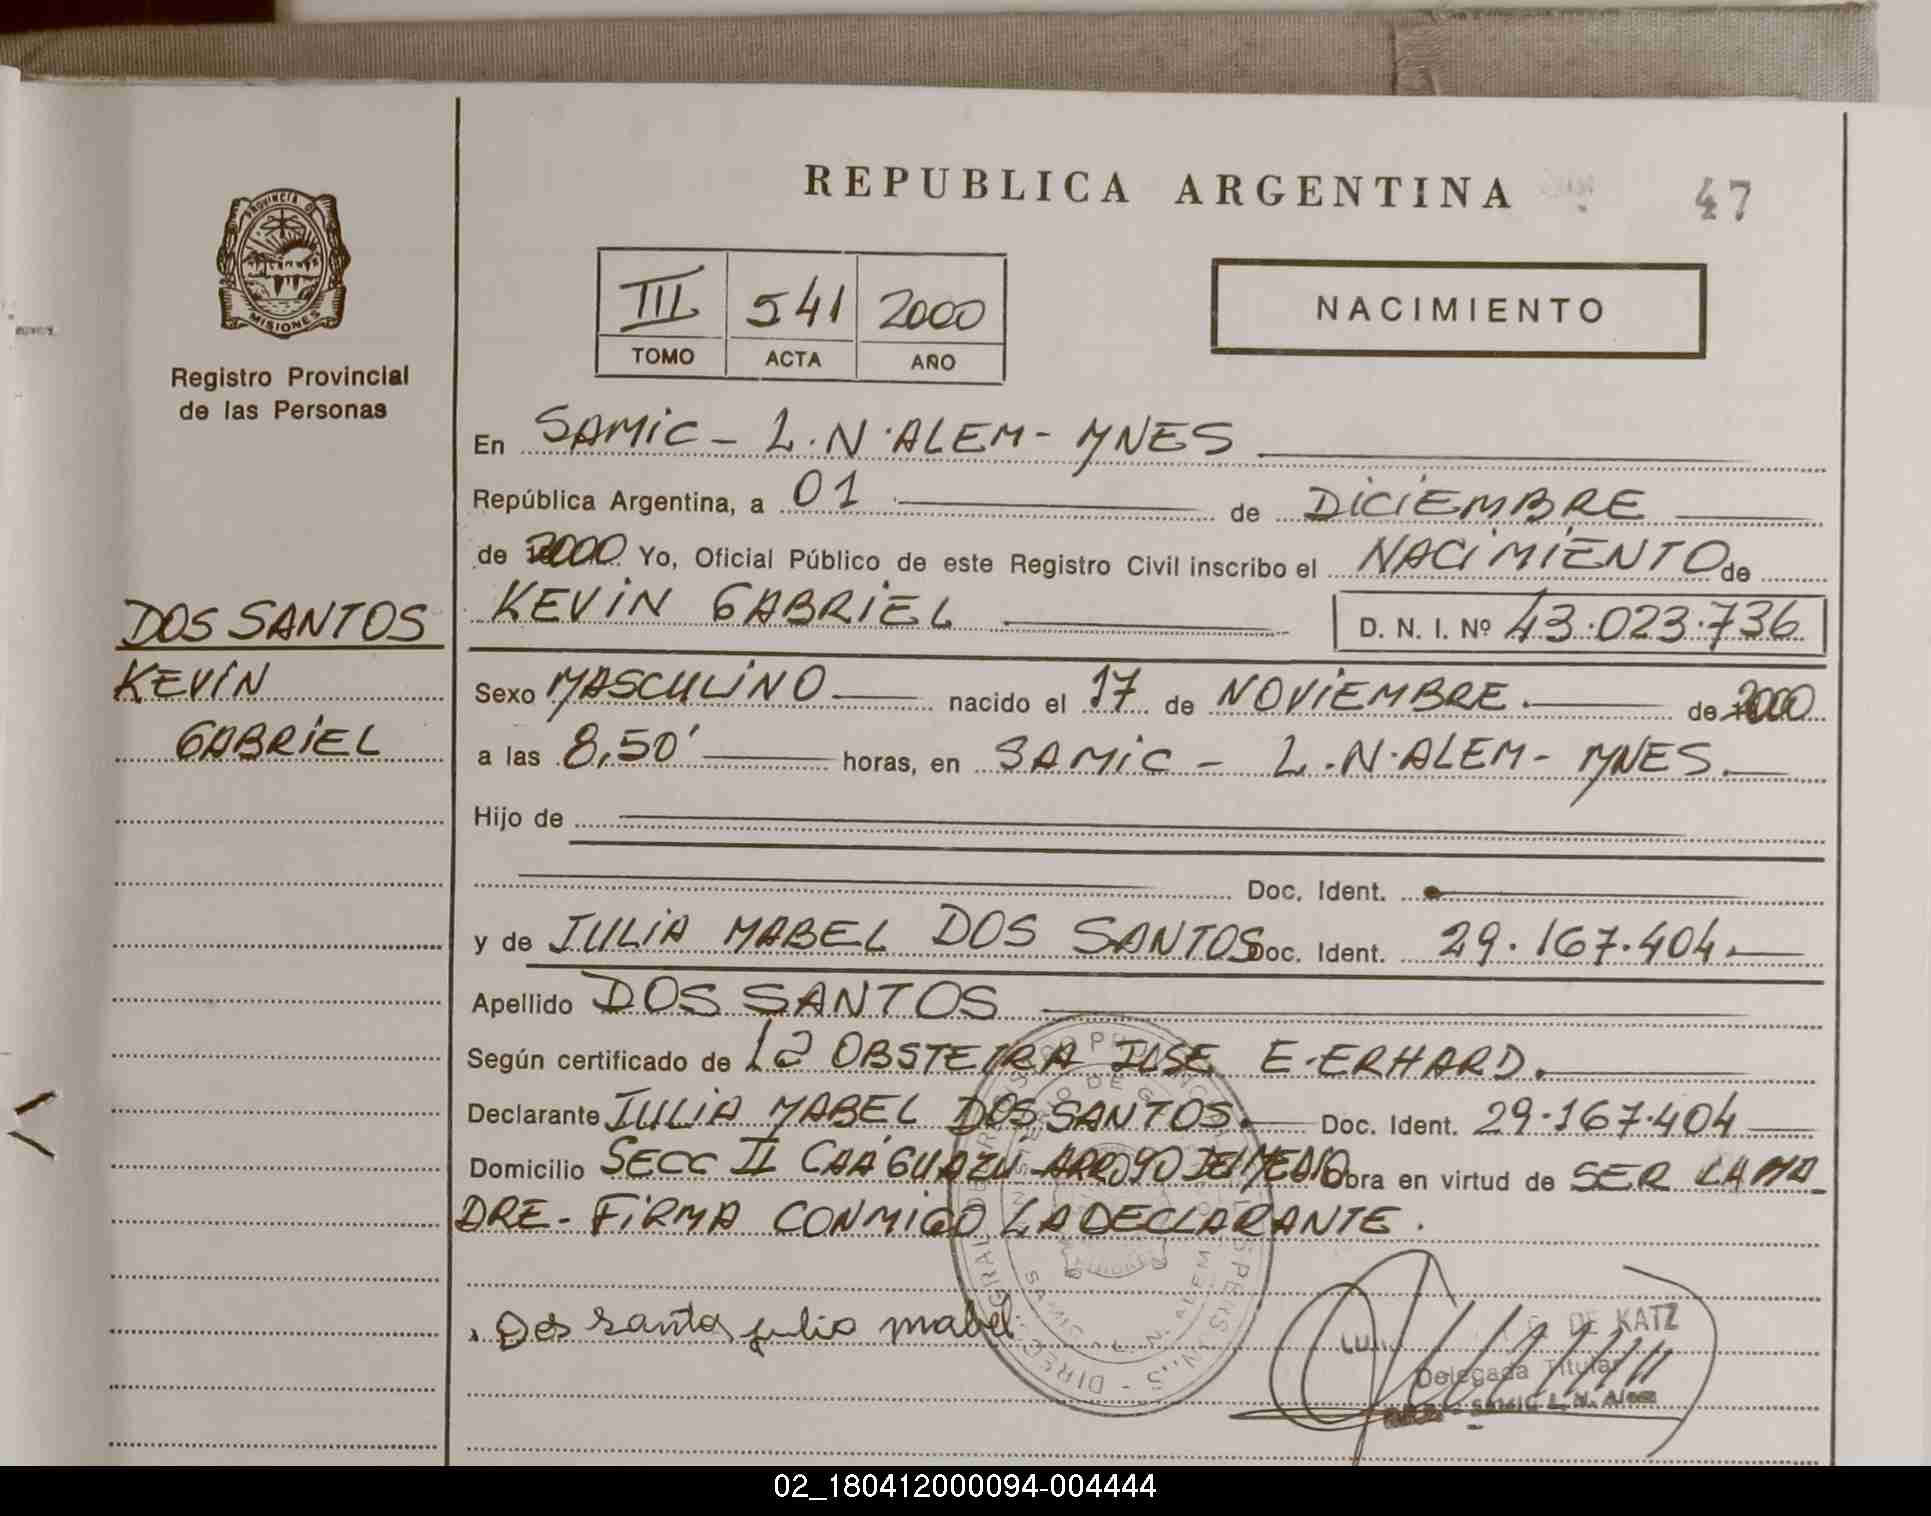 REPUBLICA ARGENTINA
47
PROVINCIA DE
MISIONES
Registro Provincial
de las Personas
III 541 2000
TOMO ACTA AÑO
NACIMIENTO
En SAMIC - L.N.ALEM - MNES
República Argentina, a 01 de DICIEMBRE
de 2000 Yo, Oficial Público de este Registro Civil inscribo el NACIMIENTO de
KEVIN GABRIEL D. N. I. Nº 43.023.736
DOS SANTOS
KEVIN
GABRIEL
Sexo MASCULINO nacido el 17 de NOVIEMBRE. de 2000
a las 8,50' horas, en SAMIC - L.N.ALEM - MNES.
Hijo de
Doc. Ident.
y de JULIA MABEL DOS SANTOS Doc. Ident. 29.167.404.
Apellido DOS SANTOS
Según certificado de La OBSTETRA ILSE E. ERHARD.
Declarante JULIA MABEL DOS SANTOS. Doc. Ident. 29.167.404
Domicilio SECC II CAÁ GUAZU ARROYO DEL MEDIO Obra en virtud de SER LA MA
DRE - FIRMA CONMIGO LA DECLARANTE.
Dos santos julia mabel
DE KATZ
Delegada Titular
SAMIC L. N. Alem
02_180412000094-004444